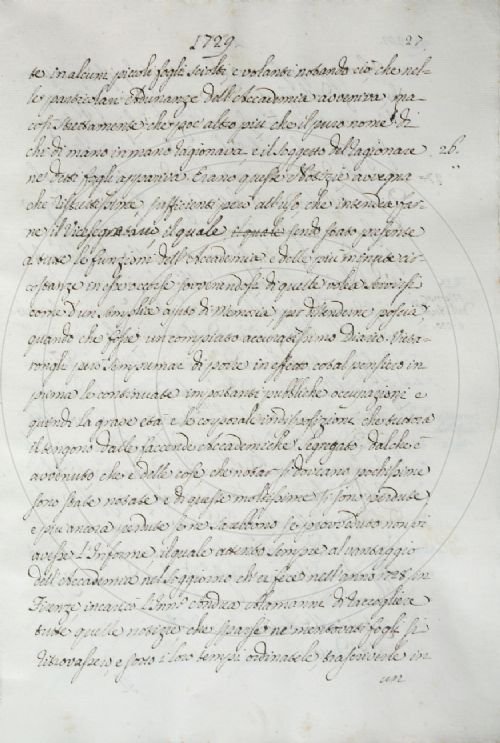 1729. 27.
te in alcuni piccoli fogli sciolti, e volanti notando ciò, che nel-
le particolari Adunanze dell'Accademia avveniva, ma
così strettamente che poc'altro più che il puro nome di
chi di mano in mano ragionava, e il soggetto del Ragionare 26.
ne' detti fogli appariva. Erano queste Notizie avvegna-
che ristrettissime, sufficienti però all'uso che intendea far-
ne il Vicesegretario, il quale il quale sendo stato presente
a tutte le funzioni dell'Accademia e delle più minute cir-
costanze in esse occorse sovvenendosi di quelle volea servirsi
come d'un semplice ajuto di Memoria per distenderne poscia,
quando che fosse, un compiuto accuratissimo Diario. Vieta-
rongli però sempremai di porre in effetto cotal pensiero in
prima le continuate importanti pubbliche occupazioni, e
quindi la grave età, e le corporali indisposizioni che tuttora
il tengono dalle faccende Accademiche segregato; dal che è
avvenuto che e delle cose che notar si doveano pochissime
sono state notate, e di queste moltissime si sono perdute
e più ancora perdute se ne sarebbono se provveduto non vi
avesse L'Informe, il quale attento sempre al vantaggio
dell'Accademia, nel soggiorno ch'ei fece nell'anno 1728. in
Firenze, incaricò L'Inn.º Andrea Alamanni di raccogliere
tutte quelle notizie, che sparse ne' mentovati fogli si
ritrovassero, e sotto i loro tempi ordinatele, trascriverle in
un